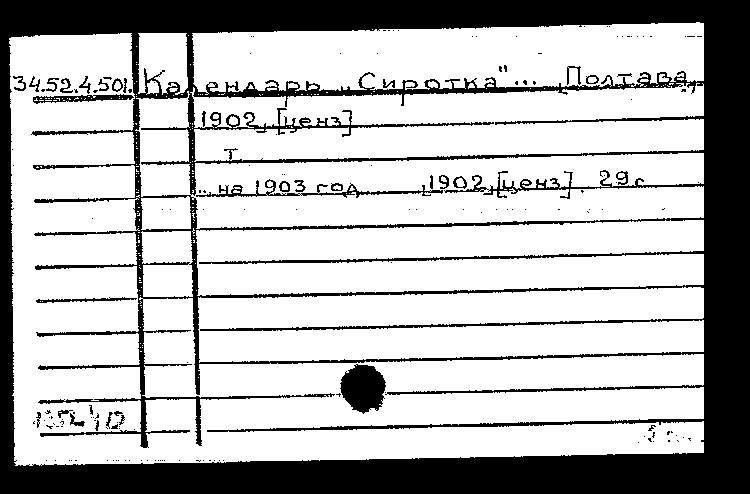 34.52.4.501. Календарь „Сиротка"... [Полтава,
1902, [ценз]
т
... на 1903 год [1902, [ценз]. 29 с